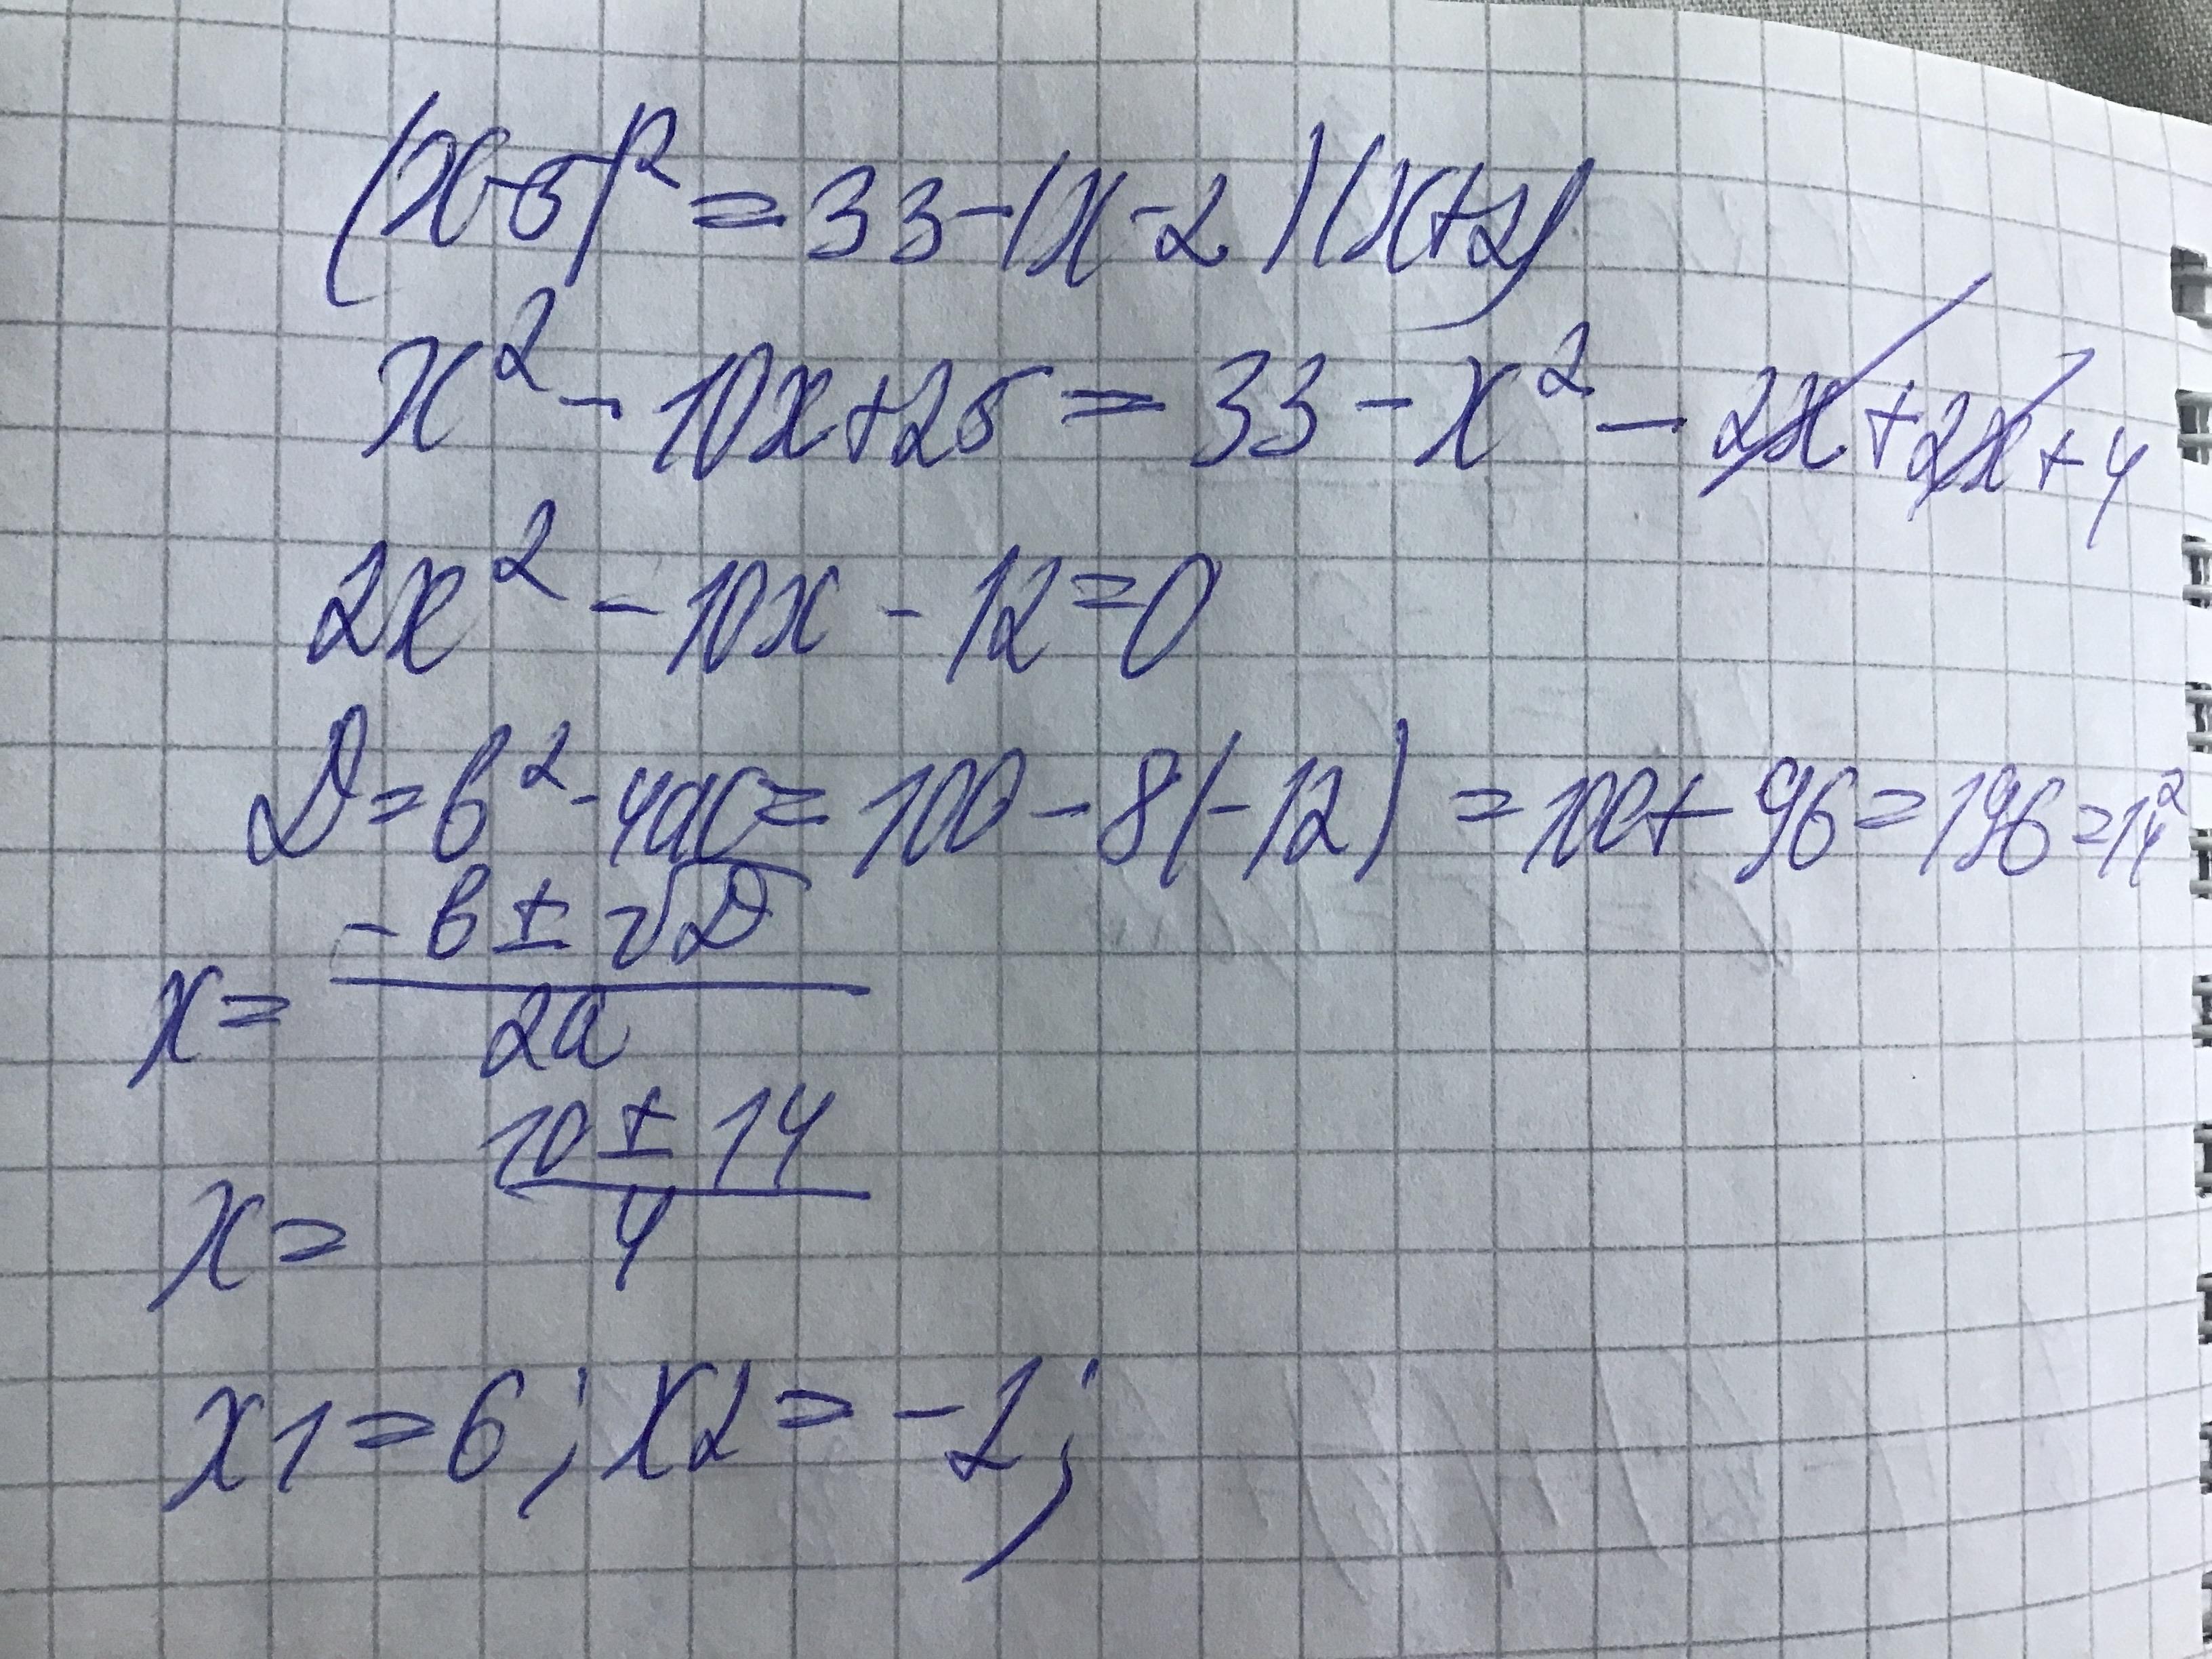 (x-5)² = 33-(x-2)(x+2)
x² - 10x+25 = 33 - x² - 2x + 2x + 4
2x² - 10x - 12=0
D=b²-4ac= 100 - 8(-12) = 100+ 96=196=14²
x= -b ± √D / 2a
x= 10 ± 14 / 4
x1=6; x2= -1;